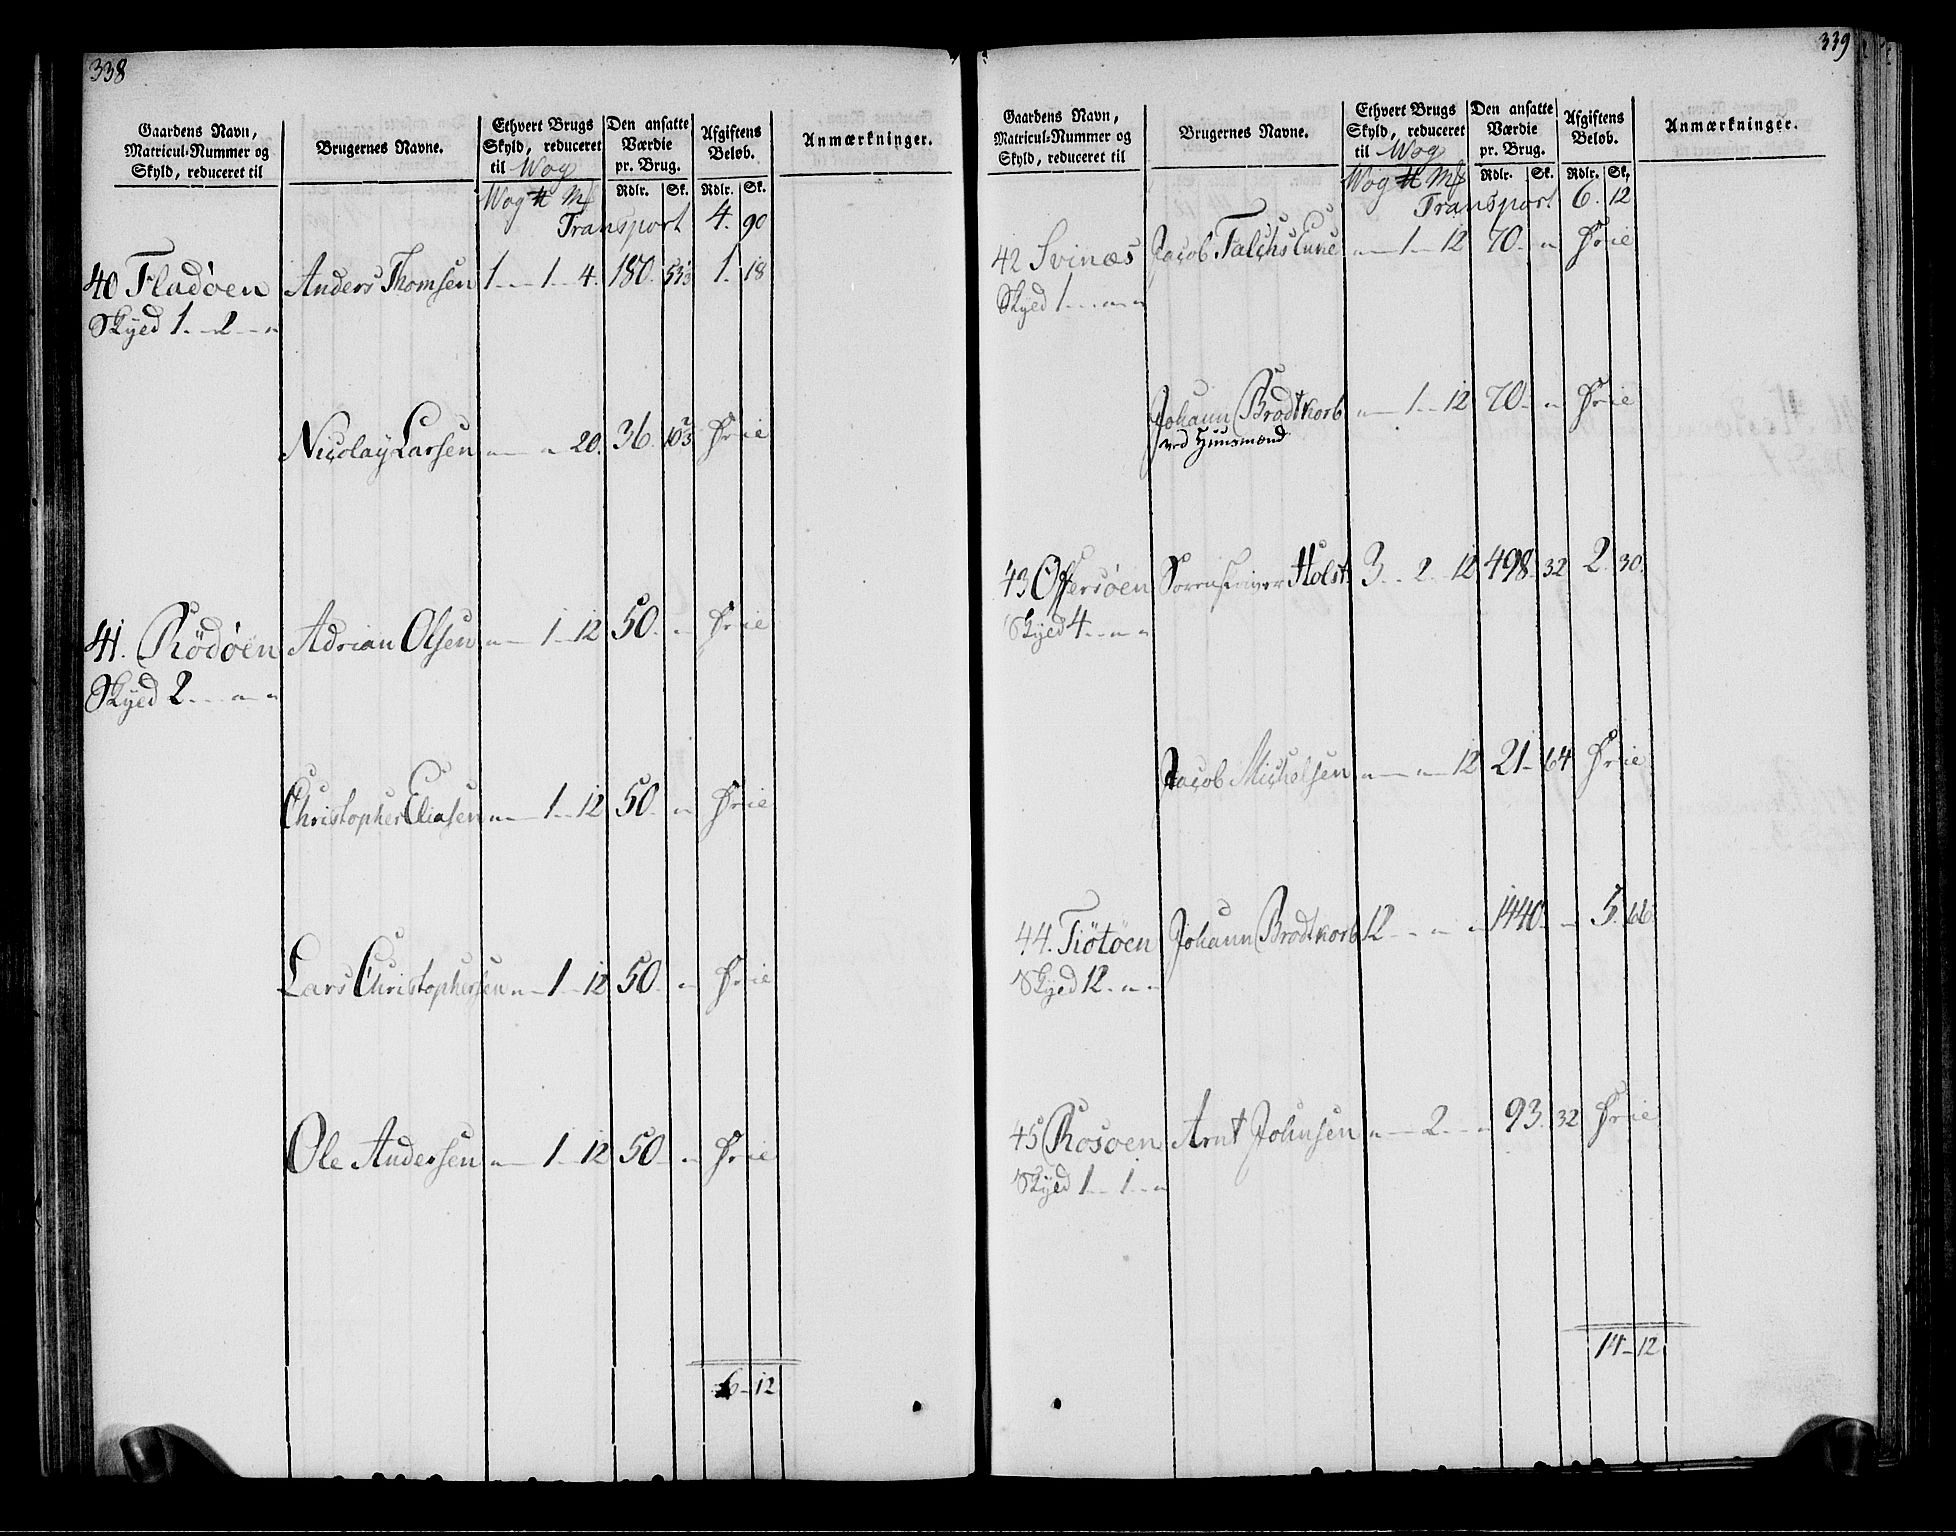 338
Gaardens Navn, Matricul-Nummer og Skyld, reduceret til
Brugernes Navne.
Ethvert Brugs Skyld, reduceret til Wog
Den ansatte Værdie pr. Brug.
Afgiftens Beløb.
Anmærkninger.
Wog ℔ Mk Rdlr. Sk. Rdlr. Sk.
Transport 4. 90
40 Fladøen Anders Thomsen 1 - 1 - 4. 180. 53⅓ 1. 18
Skyed 1 - 2 - "
Nicolay Larsen " - " 20. 36. 10⅔ Frie
41. Rödöen Adrian Olsen " - 1 - 12 50. " Frie
Skyed 2 - " - "
Christopher Eliasen " - 1 - 12 50. " Frie
Lars Christophersen " - 1 - 12 50. " Frie
Ole Andersen " - 1 - 12 50 - " Frie
6 - 12
339
Gaardens Navn, Matricul-Nummer og Skyld, reduceret til
Brugernes Navne.
Ethvert Brugs Skyld, reduceret til Wog
Den ansatte Værdie pr. Brug.
Afgiftens Beløb.
Anmærkninger.
Wog ℔ Mk Rdlr. Sk. Rdlr. Sk.
Transport 6. 12
42 Svinæs Jacob Falchs Enne " - 1 - 12 70. " Frie
Skyed 1 - " - "
Johann Brodtkorb " - 1 - 12 70. " Frie
ved Huusmænd
43 Offersöen Sorenskriver Holst 3 - 2 - 12 498. 32 2. 30.
Skyed 4 - " - "
Jacob Michelsen " - " - 12 21 - 64 Frie
44. Tiötöen Johann Brodtkorb 12 - " - " 1440. - 5. 66
Skyed 12 - " - "
45 Rosøen Arnt Johnsen " - 2 - " 93. 32 Frie
Skyed 1 - 1 - "
14 - 12